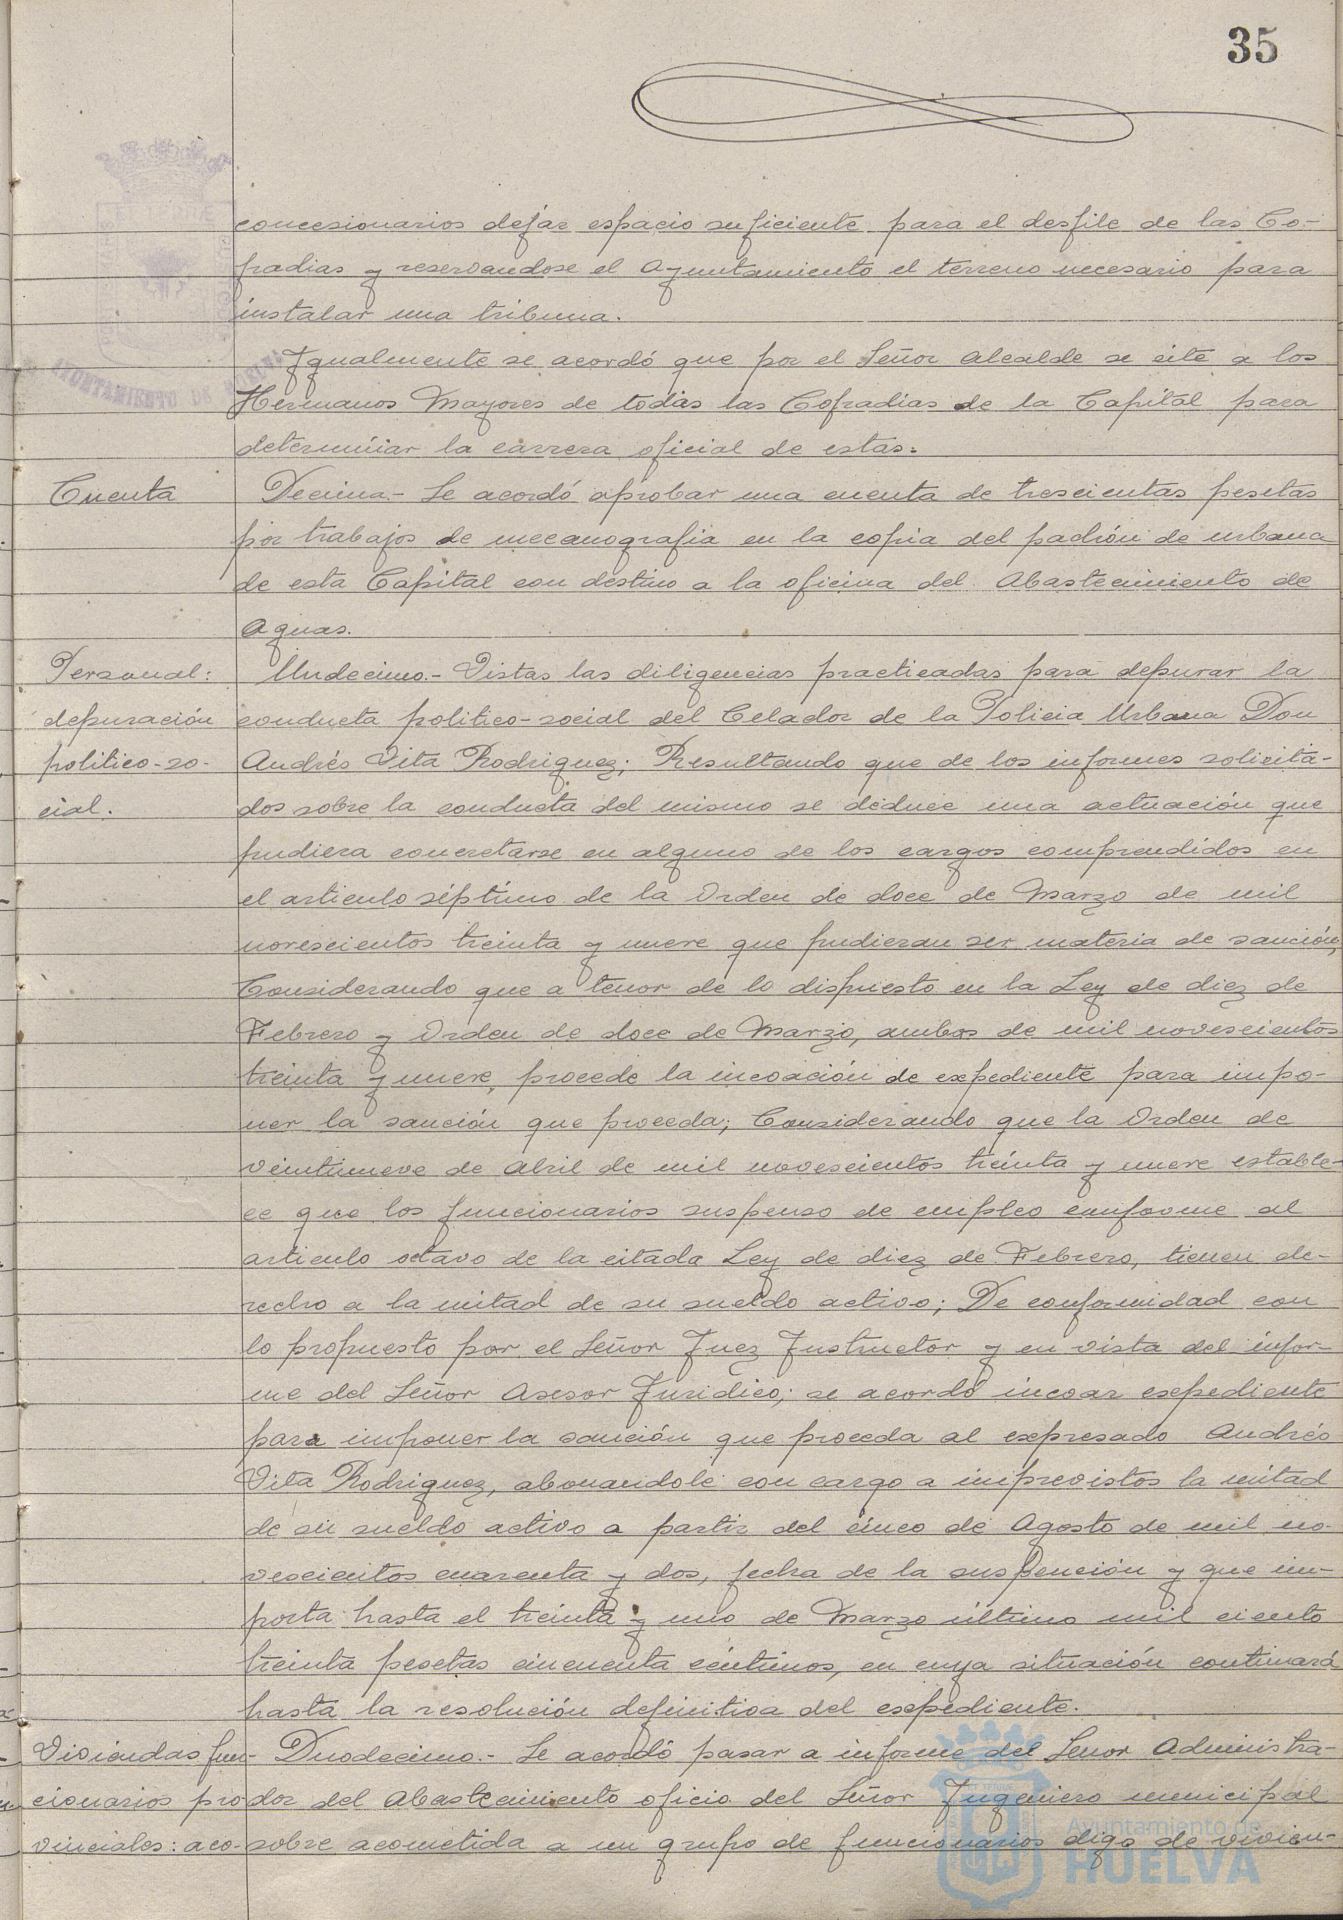 35
concesionarios dejar espacio suficiente para el desfile de las Co-
fradias y reservandose el Ayuntamiento el terreno necesario para
instalar una tribuna.
Igualmente se acordó que por el Señor Alcalde se cite a los
Hermanos Mayores de todas las Cofradias de la Capital para
determinar la carrera oficial de estas.
Cuenta
Decima.- Se acordó aprobar una cuenta de trescientas pesetas
por trabajos de mecanografia en la copia del padrón de urbana
de esta Capital con destino a la oficina del Abastecimiento de
Aguas.
Personal:
depuración
politico-so-
cial.
Undecimo.- Vistas las diligencias practicadas para depurar la
conducta politico-social del Celador de la Policia Urbana Don
Andrés Vita Rodriguez; Resultando que de los informes solicita-
dos sobre la conducta del mismo se deduce una actuación que
pudiera concretarse en alguno de los cargos comprendidos en
el articulo séptimo de la Orden de doce de Marzo de mil
novescientos treinta y nueve que pudieran ser materia de sanción,
Considerando que a tenor de lo dispuesto en la Ley de diez de
Febrero y Orden de doce de Marzo, ambos de mil novescientos
treinta y nueve, procede la incoación de expediente para impo-
ner la sanción que proceda; Considerando que la Orden de
veintinueve de Abril de mil novescientos treinta y nueve estable-
ce que los funcionarios suspenso de empleo conforme al
articulo octavo de la citada Ley de diez de Febrero, tienen de-
recho a la mitad de su sueldo activo; De conformidad con
lo propuesto por el Señor Juez Instructor y en vista del infor-
me del Señor Asesor Juridico; se acordó incoar expediente
para imponer la sanción que proceda al expresado Andrés
Vita Rodriguez, abonandole con cargo a imprevistos la mitad
de su sueldo activo a partir del cinco de Agosto de mil no-
vescientos cuarenta y dos, fecha de la suspención y que im-
porta hasta el treinta y uno de Marzo último mil ciento
treinta pesetas cincuenta céntimos, en cuya situación continuará
hasta la resolución definitiva del expediente.
Viviendas fun-
cionarios pro-
vinciales: aco-
Duodecimo.- Se acordó pasar a informe del Señor Administra-
dor del Abastecimiento oficio del Señor Ingeniero municipal
sobre acometida a un grupo de funcionarios digo de vivien-
AYUNTAMIENTO DE HUELVA
Ayuntamiento de
HUELVA